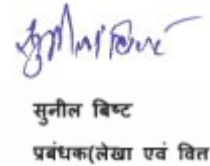 सुनील बिष्ट
प्रबंधक(लेखा एवं वित